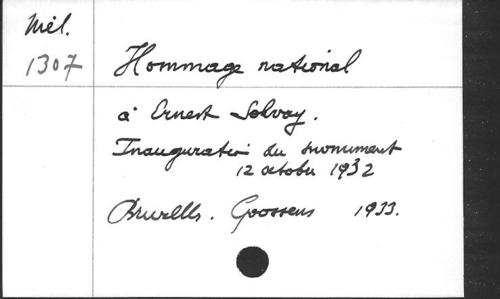 Mél.
1307
Hommage national
à Ernest Solvay.
Inauguration du monument
12 octobre 1932
Bruxelles. Goossens 1933.